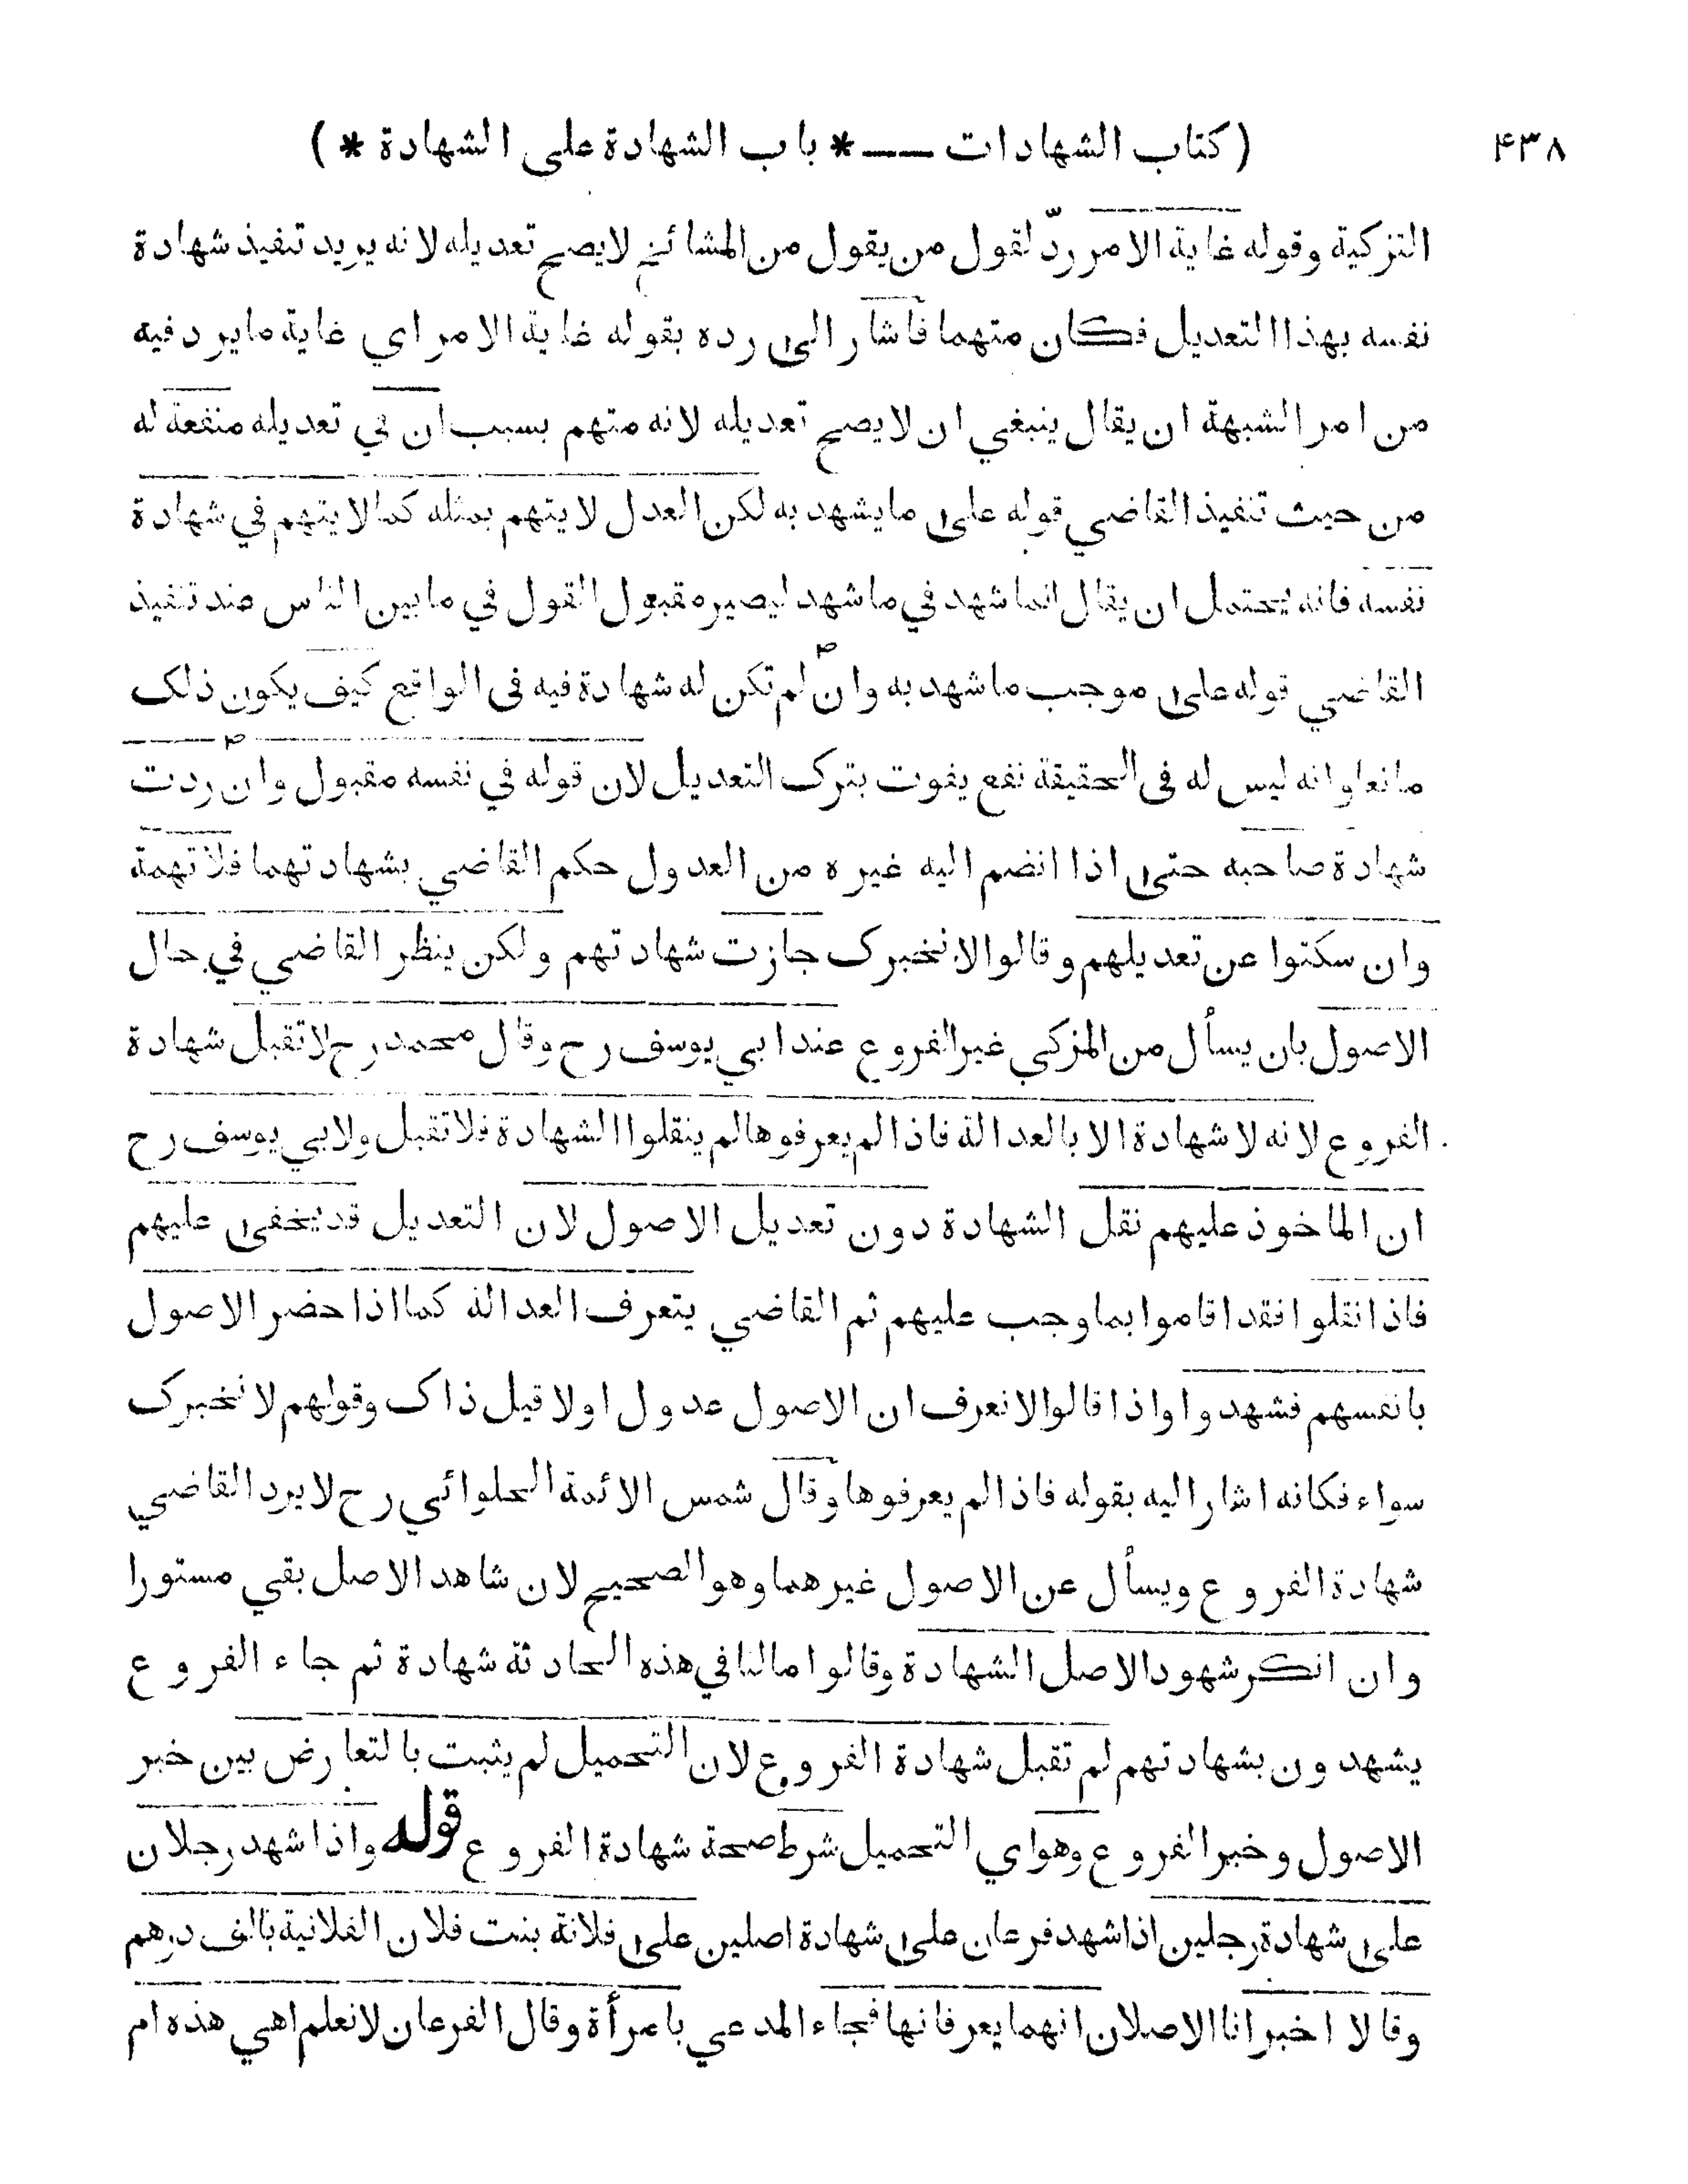 ۴۳۸ (كتاب الشهادات ـــ * باب الشهادة على الشهادة *)
التزكية وقوله غاية الامر ردّ لقول من يقول من المشائخ لايصح تعديله لانه يريد تنفيذ شهادة
نفسه بهذا التعديل فكان متهما فأشار الى رده بقوله غاية الامر اي غاية مايرد فيه
من امر الشبهة ان يقال ينبغي ان لايصح تعديله لانه متهم بسبب ان في تعديله منفعة له
من حيث تنفيذ القاضي قوله على مايشهد به لكن العدل لا يتهم بمثله كما لا يتهم في شهادة
نفسه فانه يحتمل ان يقال انما شهد في ما شهد ليصير مقبول القول في ما بين الناس عند تنفيذ
القاضي قوله على موجب ما شهد به وان لم تكن له شهادة فيه فى الواقع كيف يكون ذلك
مانعا وانه ليس له فى الحقيقة نفع يفوت بترك التعديل لان قوله في نفسه مقبول وان ردت
شهادة صاحبه حتى اذا انضم اليه غيره من العدول حكم القاضي بشهادتهما فلا تهمة
وان سكتوا عن تعديلهم وقالوا لا نخبرك جازت شهادتهم ولكن ينظر القاضي في حال
الاصول بان يسأل من المزكي غير الفروع عند ابي يوسف رح وقال محمد رح لا تقبل شهادة
الفروع لانه لا شهادة الا بالعدالة فاذا لم يعرفوها لم ينقلوا الشهادة فلا تقبل ولابي يوسف رح
ان الماخوذ عليهم نقل الشهادة دون تعديل الاصول لان التعديل قد يخفى عليهم
فاذا نقلوا فقد اقاموا بما وجب عليهم ثم القاضي يتعرف العدالة كما اذا حضر الاصول
بانفسهم فشهدوا واذا قالوا لا نعرف ان الاصول عدول او لا قيل ذاك وقولهم لا نخبرك
سواء فكانه اشار اليه بقوله فاذا لم يعرفوها وقال شمس الائمة الحلوائي رح لا يرد القاضي
شهادة الفروع ويسأل عن الاصول غيرهما وهو الصحيح لان شاهد الاصل بقي مستورا
وان انكر شهود الاصل الشهادة وقالوا مالنا في هذه الحادثة شهادة ثم جاء الفروع
يشهدون بشهادتهم لم تقبل شهادة الفروع لان التحميل لم يثبت بالتعارض بين خبر
الاصول وخبر الفروع وهو اي التحميل شرط صحة شهادة الفروع قوله واذا شهد رجلان
على شهادة رجلين اذا شهد فرعان على شهادة اصلين على فلانة بنت فلان الفلانية بالف درهم
وقالا اخبرانا الاصلان انهما يعرفانها فجاء المدعي بامرأة وقال الفرعان لا نعلم اهي هذه ام